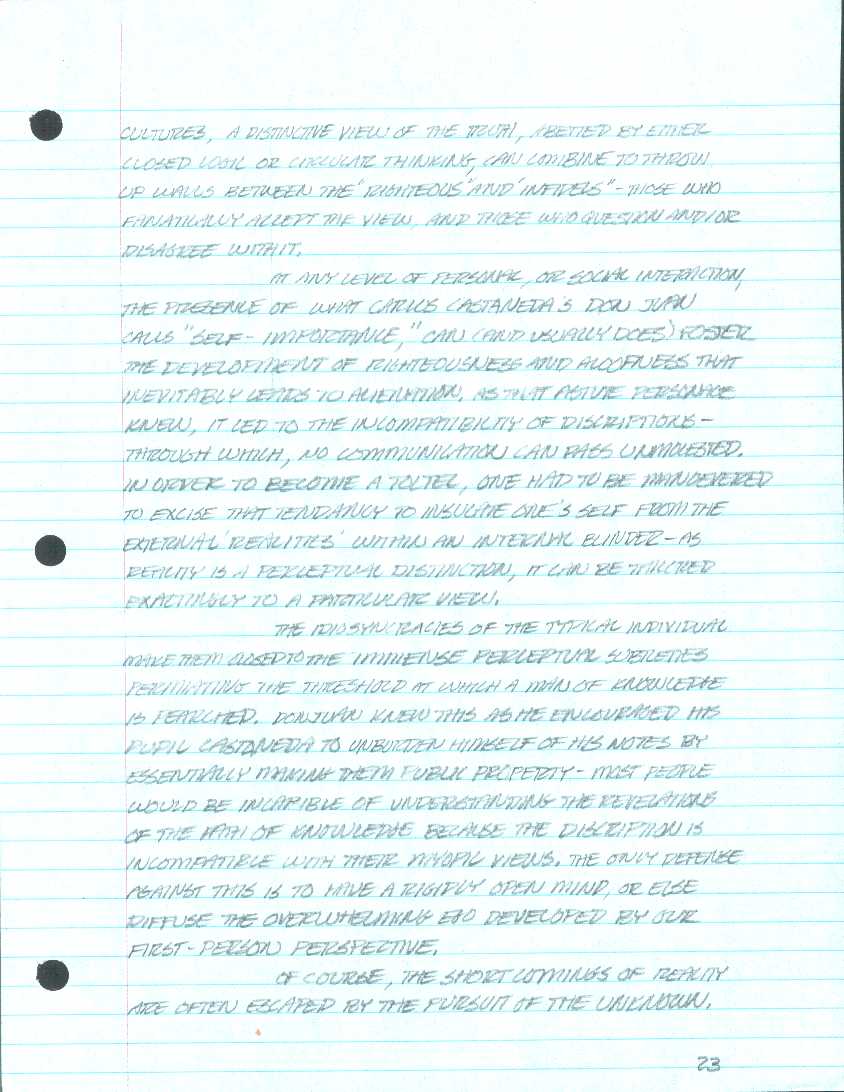 CULTURES, A DISTINCTIVE VIEW OF THE TRUTH, ABETTED BY EITHER
CLOSED LOGIC OR CIRCULAR THINKING, CAN COMBINE TO THROW
UP WALLS BETWEEN THE "RIGHTEOUS" AND "INFIDELS" - THOSE WHO
FANATICALLY ACCEPT THE VIEW, AND THOSE WHO QUESTION AND/OR
DISAGREE WITH IT.
AT ANY LEVEL OF PERSONAL, OR SOCIAL INTERACTION,
THE PRESENCE OF WHAT CARLOS CASTANEDA'S DON JUAN
CALLS "SELF-IMPORTANCE," CAN (AND USUALLY DOES) FOSTER
THE DEVELOPMENT OF RIGHTEOUSNESS AND ALOOFNESS THAT
INEVITABLY LEADS TO ALIENATION. AS THAT ASTUTE PERSONAGE
KNEW, IT LED TO THE INCOMPATIBILITY OF DISCRIPTIONS -
THROUGH WHICH, NO COMMUNICATION CAN PASS UNMOLESTED.
IN ORDER TO BECOME A TOLTEC, ONE HAD TO BE MANUEVERED
TO EXCISE THAT TENDANCY TO INSULATE ONE'S SELF FROM THE
EXTERNAL 'REALITIES' WITHIN AN INTERNAL BLINDER - AS
REALITY IS A PERCEPTUAL DISTINCTION, IT CAN BE TAILORED
EXACTINGLY TO A PARTICULAR VIEW.
THE IDIOSYNCRACIES OF THE TYPICAL INDIVIDUAL
MAKE THEM CLOSED TO THE IMMENSE PERCEPTUAL SUBTLETIES
PERMIATING THE THRESHOLD AT WHICH A MAN OF KNOWLEDGE
IS REARCHED. DON JUAN KNEW THIS AS HE ENCOURAGED HIS
PUPIL CASTANEDA TO UNBURDEN HIMSELF OF HIS NOTES BY
ESSENTIALLY MAKING THEM PUBLIC PROPERTY - MOST PEOPLE
WOULD BE INCAPIBLE OF UNDERSTANDING THE REVELATIONS
OF THE PATH OF KNOWLEDGE BECAUSE THE DISCRIPTION IS
INCOMPATIBLE WITH THEIR MYOPIC VIEWS. THE ONLY DEFENSE
AGAINST THIS IS TO HAVE A RIGIDLY OPEN MIND, OR ELSE
DIFFUSE THE OVERWHELMING EGO DEVELOPED BY OUR
FIRST-PERSON PERSPECTIVE.
OF COURSE, THE SHORTCOMINGS OF REALITY
ARE OFTEN ESCAPED BY THE PURSUIT OF THE UNKNOWN.
23